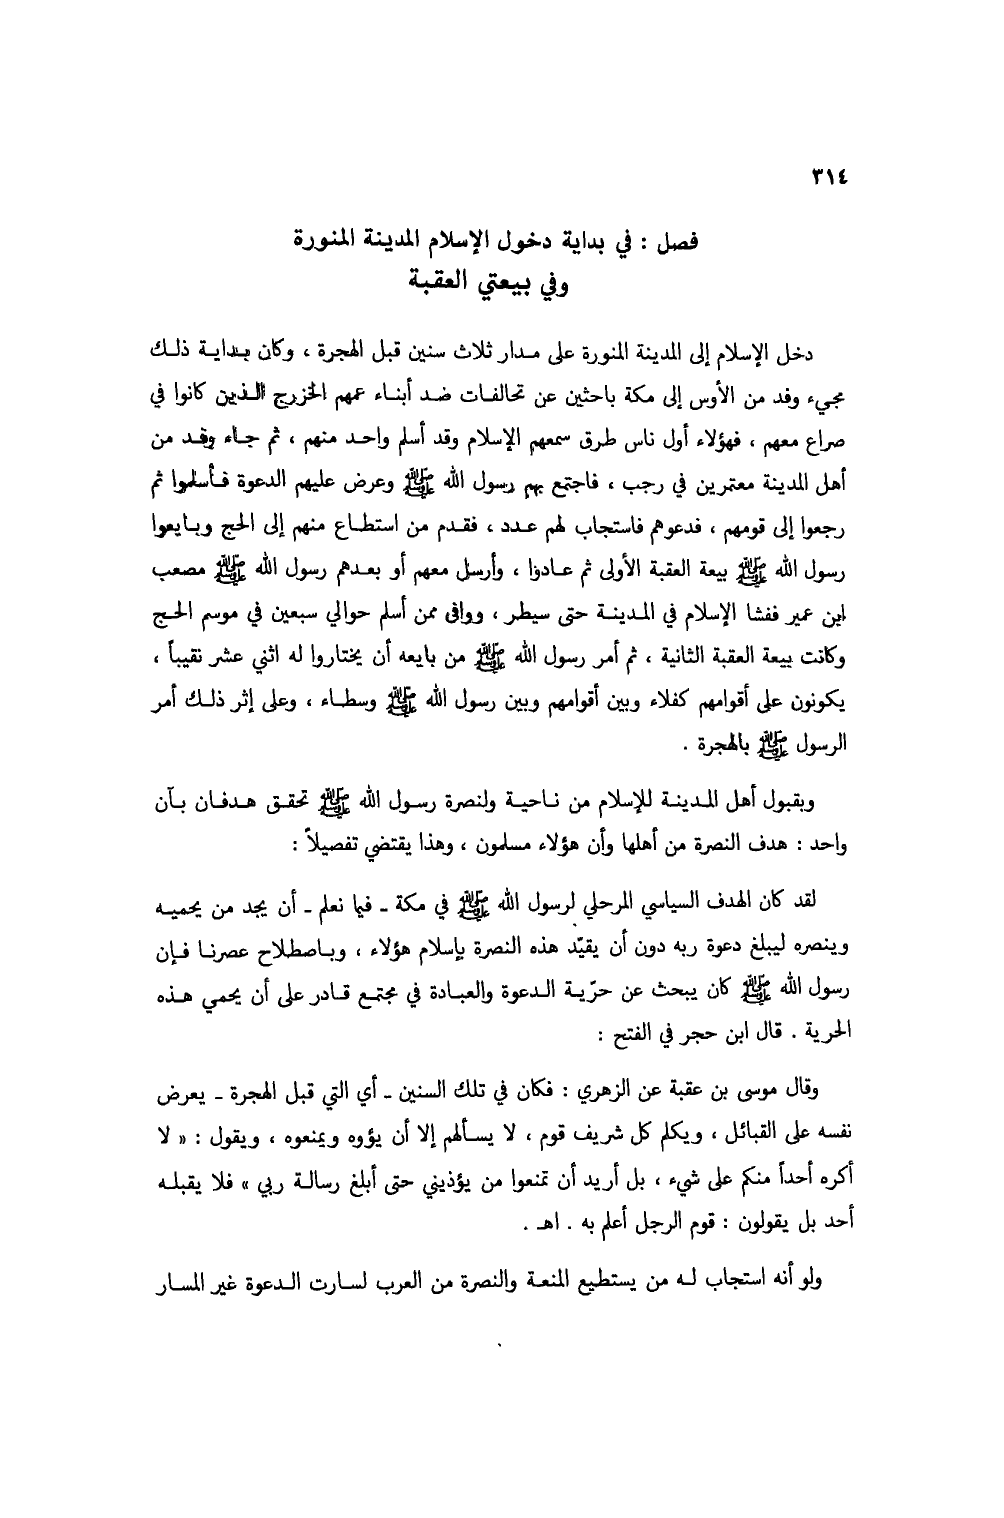 ٣١٤
فصل : في بداية دخول الإسلام المدينة المنورة
وفي بيعتي العقبة
دخل الإسلام إلى المدينة المنورة على مدار ثلاث سنين قبل الهجرة ، وكان بداية ذلك
مجيء وفد من الأوس إلى مكة باحثين عن تحالفات ضد أبناء عمهم الخزرج الذين كانوا في
صراع معهم ، فهؤلاء أول ناس طرق سمعهم الإسلام وقد أسلم واحد منهم ، ثم جاء وفد من
أهل المدينة معتمرين في رجب ، فاجتمع بهم رسول الله ﷺ وعرض عليهم الدعوة فأسلموا ثم
رجعوا إلى قومهم ، فدعوهم فاستجاب لهم عدد ، فقدم من استطاع منهم إلى الحج وبايعوا
رسول الله ﷺ بيعة العقبة الأولى ثم عادوا ، وأرسل معهم أو بعدهم رسول الله ﷺ مصعب
ابن عمير ففشا الإسلام في المدينة حتى سيطر ، ووافى ممن أسلم حوالي سبعين في موسم الحج
وكانت بيعة العقبة الثانية ، ثم أمر رسول الله ﷺ من بايعه أن يختاروا له اثني عشر نقيباً ،
يكونون على أقوامهم كفلاء وبين أقوامهم وبين رسول الله ﷺ وسطاء ، وعلى إثر ذلك أمر
الرسول ﷺ بالهجرة .
وبقبول أهل المدينة للإسلام من ناحية ولنصرة رسول الله ﷺ تحقق هدفان بآن
واحد : هدف النصرة من أهلها وأن هؤلاء مسلمون ، وهذا يقتضي تفصيلاً :
لقد كان الهدف السياسي المرحلي لرسول الله ﷺ في مكة ـ فيما نعلم ـ أن يجد من يحميه
وينصره ليبلغ دعوة ربه دون أن يقيّد هذه النصرة بإسلام هؤلاء ، وباصطلاح عصرنا فإن
رسول الله ﷺ كان يبحث عن حرّية الدعوة والعبادة في مجتمع قادر على أن يحمي هذه
الحرية . قال ابن حجر في الفتح :
وقال موسى بن عقبة عن الزهري : فكان في تلك السنين ـ أي التي قبل الهجرة ـ يعرض
نفسه على القبائل ، ويكلم كل شريف قوم ، لا يسألهم إلا أن يؤوه ويمنعوه ، ويقول : « لا
أكره أحداً منكم على شيء ، بل أريد أن تمنعوا من يؤذيني حتى أبلغ رسالة ربي » فلا يقبله
أحد بل يقولون : قوم الرجل أعلم به . اهـ .
ولو أنه استجاب له من يستطيع المنعة والنصرة من العرب لسارت الدعوة غير المسار